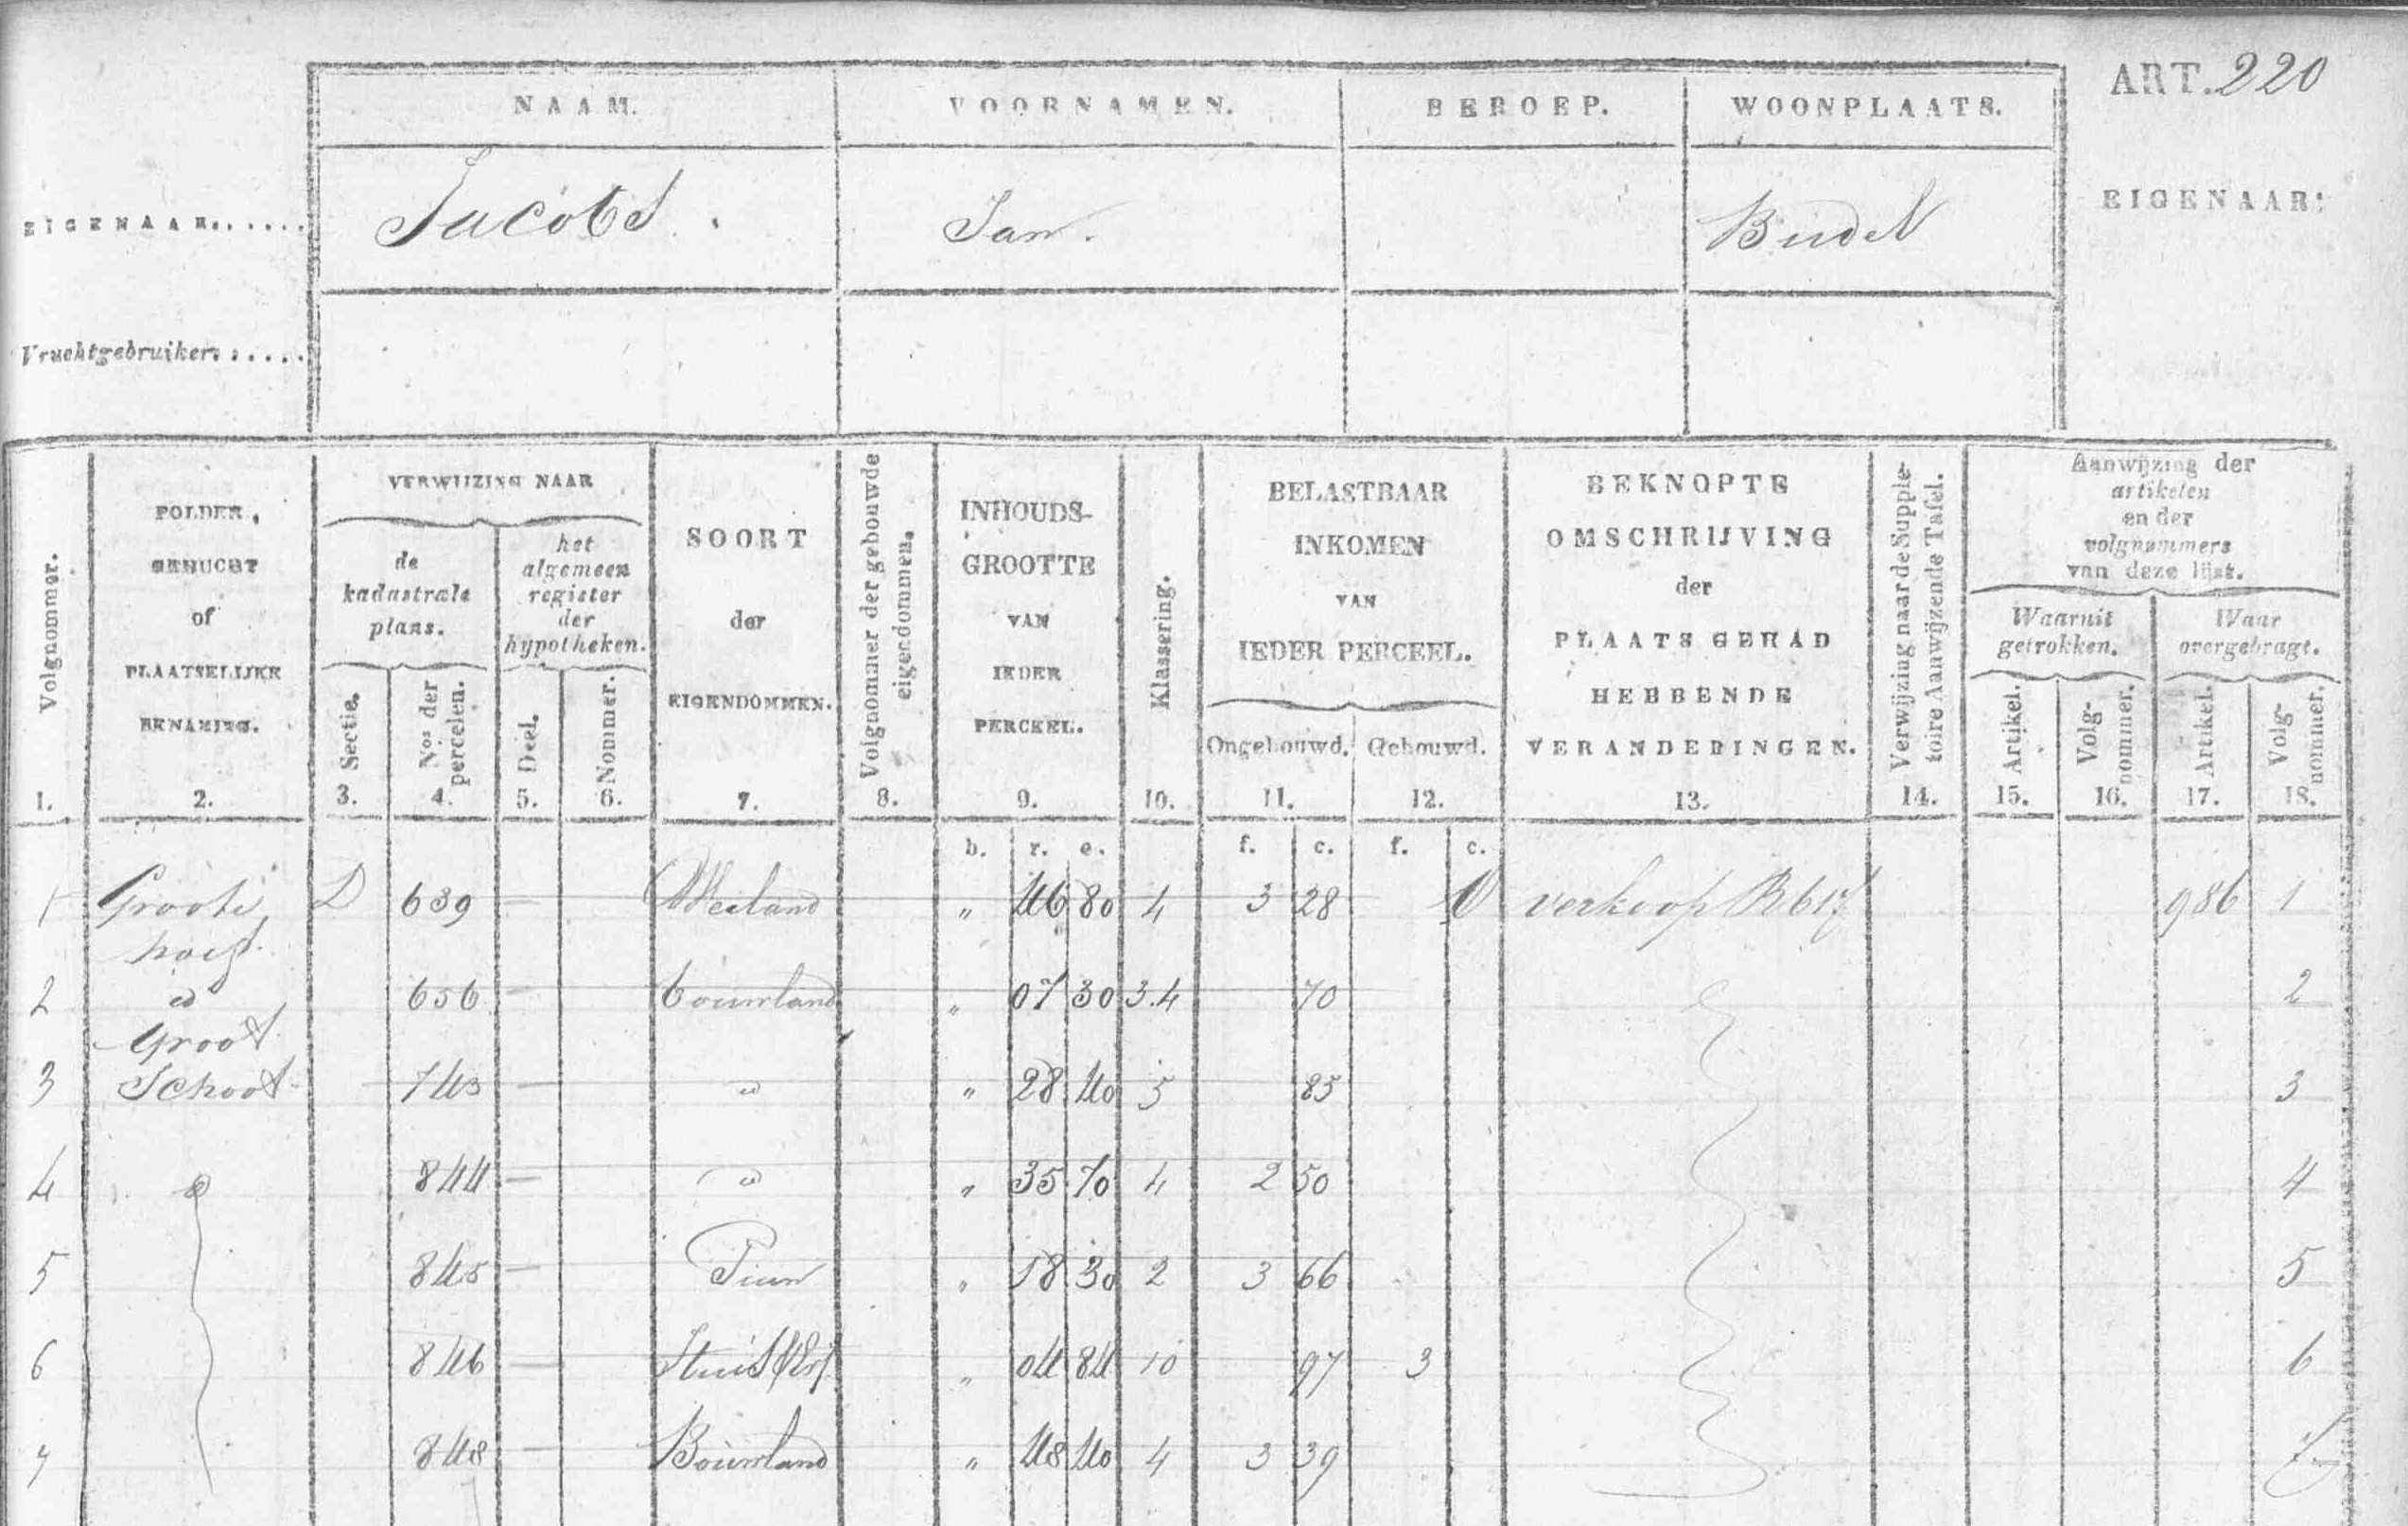 ART. 220
NAAM. VOORNAMEN. BEROEP. WOONPLAATS.
EIGENAAR...... Jacobs Jan. Budel EIGENAAR:
Vruchtgebruiker......
Volgnommer. 1.
POLDER, GEHUCHT of PLAATSELIJKE BENAMING. 2.
VERWIJZING NAAR
de kadastrale plans.
Sectie. 3.
Nos der percelen. 4.
het algemeen register der hypotheken.
Deel. 5.
Nommer. 6.
SOORT der EIGENDOMMEN. 7.
Volgnommer der gebouwde eigendommen. 8.
INHOUDS-GROOTTE VAN IEDER PERCEEL. 9.
Klassering. 10.
BELASTBAAR INKOMEN VAN IEDER PERCEEL.
Ongebouwd. 11.
Gebouwd. 12.
BEKNOPTE OMSCHRIJVING der PLAATS GEHAD HEBBENDE VERANDERINGEN. 13.
Verwijzing naar de Suppletoire Aanwijzende Tafel. 14.
Aanwijzing der artikelen en der volgnummers van deze lijst.
Waaruit getrokken.
Artikel. 15.
Volg-nommer. 16.
Waar overgebragt.
Artikel. 17.
Volg-nommer. 18.
b. r. e. f. c. f. c.
1 Groote D 639 — Weiland " 46 80 4 3 28 verkoop R 617 986 1
2 id 656 — bouwland " 07 30 3.4 70 2
Groot
3 Schoot 743 — id " 28 40 5 85 3
4 id 844 — id " 35 70 4 2 50 4
5 845 — Tuin " 18 30 2 3 66 5
6 846 — Huis & Erf " 04 84 10 97 3 6
7 848 — Bouwland " 48 40 4 3 39 7